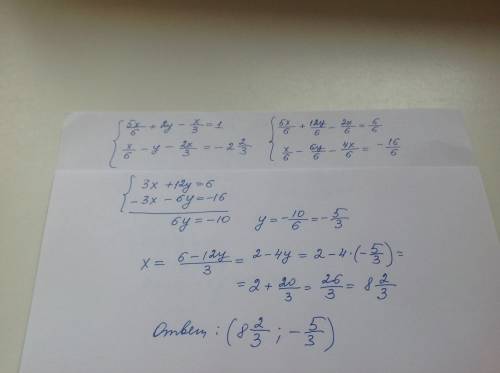 { 5x/6 + 2y - x/3 = 1 { 5x/6 + 12y/6 - 2x/6 = 6/6
x/6 - y - 2x/3 = -2 2/3 x/6 - 6y/6 - 4x/6 = -16/6
{ 3x + 12y = 6
-3x - 6y = -16
6y = -10 y = -10/6 = -5/3
x = (6-12y)/3 = 2-4y = 2-4·(-5/3) =
= 2 + 20/3 = 26/3 = 8 2/3
Ответ: (8 2/3; -5/3)